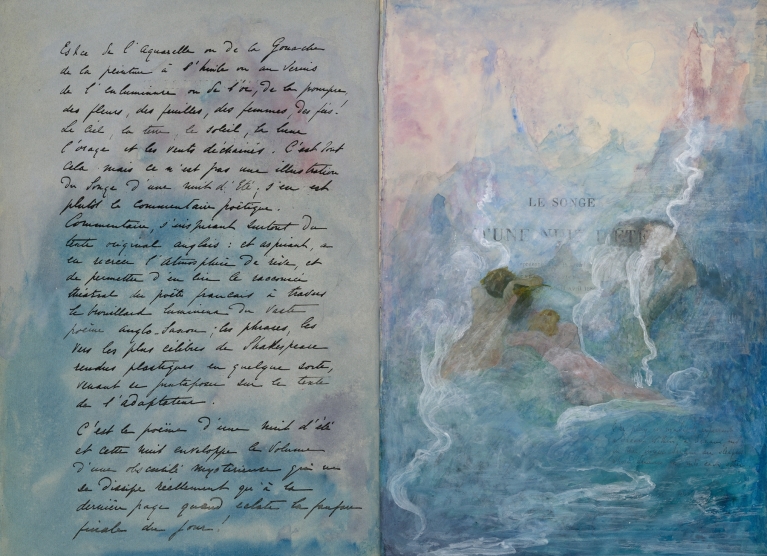 Est-ce de l'aquarelle ou de la Gouache
de la peinture à l'huile ou au vernis
de l'enluminure ou de l'or, de la pourpre,
des fleurs, des feuilles, des femmes, des fés!
Le ciel, la terre, le soleil, la lune
l'orage et les vents déchainés. C'est tout
cela mais ce n'est pas une illustration
du Songe d'une nuit d'Eté; s'en est
plutôt le commentaire poëtique.
Commentaire, s'inspirant surtout du
texte original anglais: et aspirant, a
en recréer l'atmosphère de rêve, et
de permettre d'en lire le raccourci
théatral du poëte francais à travers
le brouillard lumineux du vaste
poëme anglo-saxon; les phrases, les
vers les plus célèbres de Shakespeare
rendus plastiques en quelque sorte,
venant se juxtaposer sur le texte
de l'adaptateur.
C'est le poëme d'une nuit d'été
et cette nuit enveloppe le volume
d'une obscurité mysterieuse qui ne
se dissipe réellement qu'à la
dernière page quand éclate la fanfare
finale du jour!
LE SONGE
D'UNE NUIT D'ÉTÉ